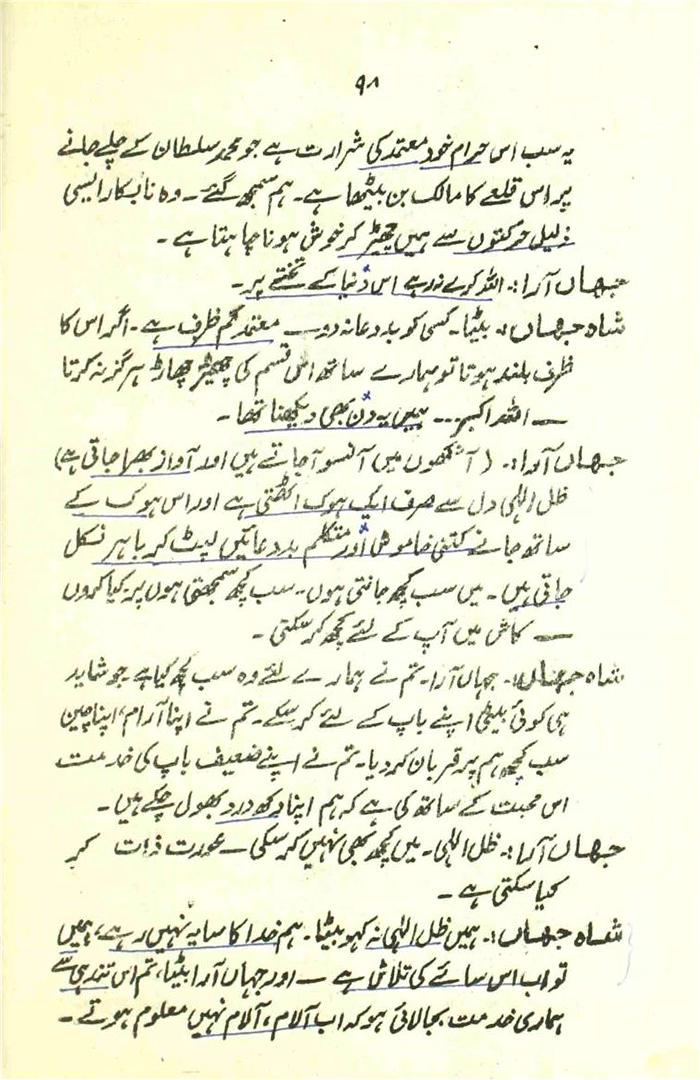 ۹۸
یہ سب اس حرام خود معتمد کی شرارت ہے جو محمد سلطان کے چلے جانے
پر اس قلعے کا مالک بن بیٹھا ہے۔ ہم سمجھ گئے۔ وہ نابکار ایسی
ذلیل حرکتوں سے ہمیں چھیڑ کر خوش ہونا چاہتا ہے۔
جہاں آرا:۔ اللہ کرے نہ رہے اس دُنیا کے تختے پر۔
شاہ جہاں:۔ بیٹا۔ کسی کو بددعا نہ دو — معتمد کم ظرف ہے۔ اگر اس کا
ظرف بلند ہوتا تو ہمارے ساتھ اس قسم کی چھیڑ چھاڑ ہرگز نہ کرتا
— اللہ اکبر... ہمیں یہ دُن بھی دیکھنا تھا۔
جہاں آرا:۔ (آنکھوں میں آنسو آجاتے ہیں اور آواز بھرا جاتی ہے)
ظل الٰہی دل سے صرف ایک ہوک اٹھتی ہے اور اس ہوک کے
ساتھ جانے کتنی خاموش اور متکلم بددعائیں لپٹ کر باہر نکل
جاتی ہیں۔ میں سب کچھ جانتی ہوں۔ سب کچھ سمجھتی ہوں پر کیا کروں
— کاش میں آپ کے لئے کچھ کر سکتی۔
شاہ جہاں:۔ جہاں آرا۔ تم نے ہمارے لئے وہ سب کچھ کیا ہے جو شاید
ہی کوئی بیٹی اپنے باپ کے لئے کر سکے۔ تم نے اپنا آرام، اپنا چین
سب کچھ ہم پر قربان کر دیا۔ تم نے اپنے ضعیف باپ کی خدمت
اس محبت کے ساتھ کی ہے کہ ہم اپنا دکھ درد بھول چکے ہیں۔
جہاں آرا:۔ ظل الٰہی۔ میں کچھ بھی نہیں کر سکی — عورت ذات کر
کیا سکتی ہے۔
شاہ جہاں:۔ ہمیں ظل الٰہی نہ کہو بیٹا۔ ہم خدا کا سایہ نہیں رہے، ہمیں
تو اب اس سائے کی تلاش ہے — اور جہاں آرا بیٹا، تم اس تندہی سے
ہماری خدمت بجا لائی ہو کہ اب آلام، آلام نہیں معلوم ہوتے۔